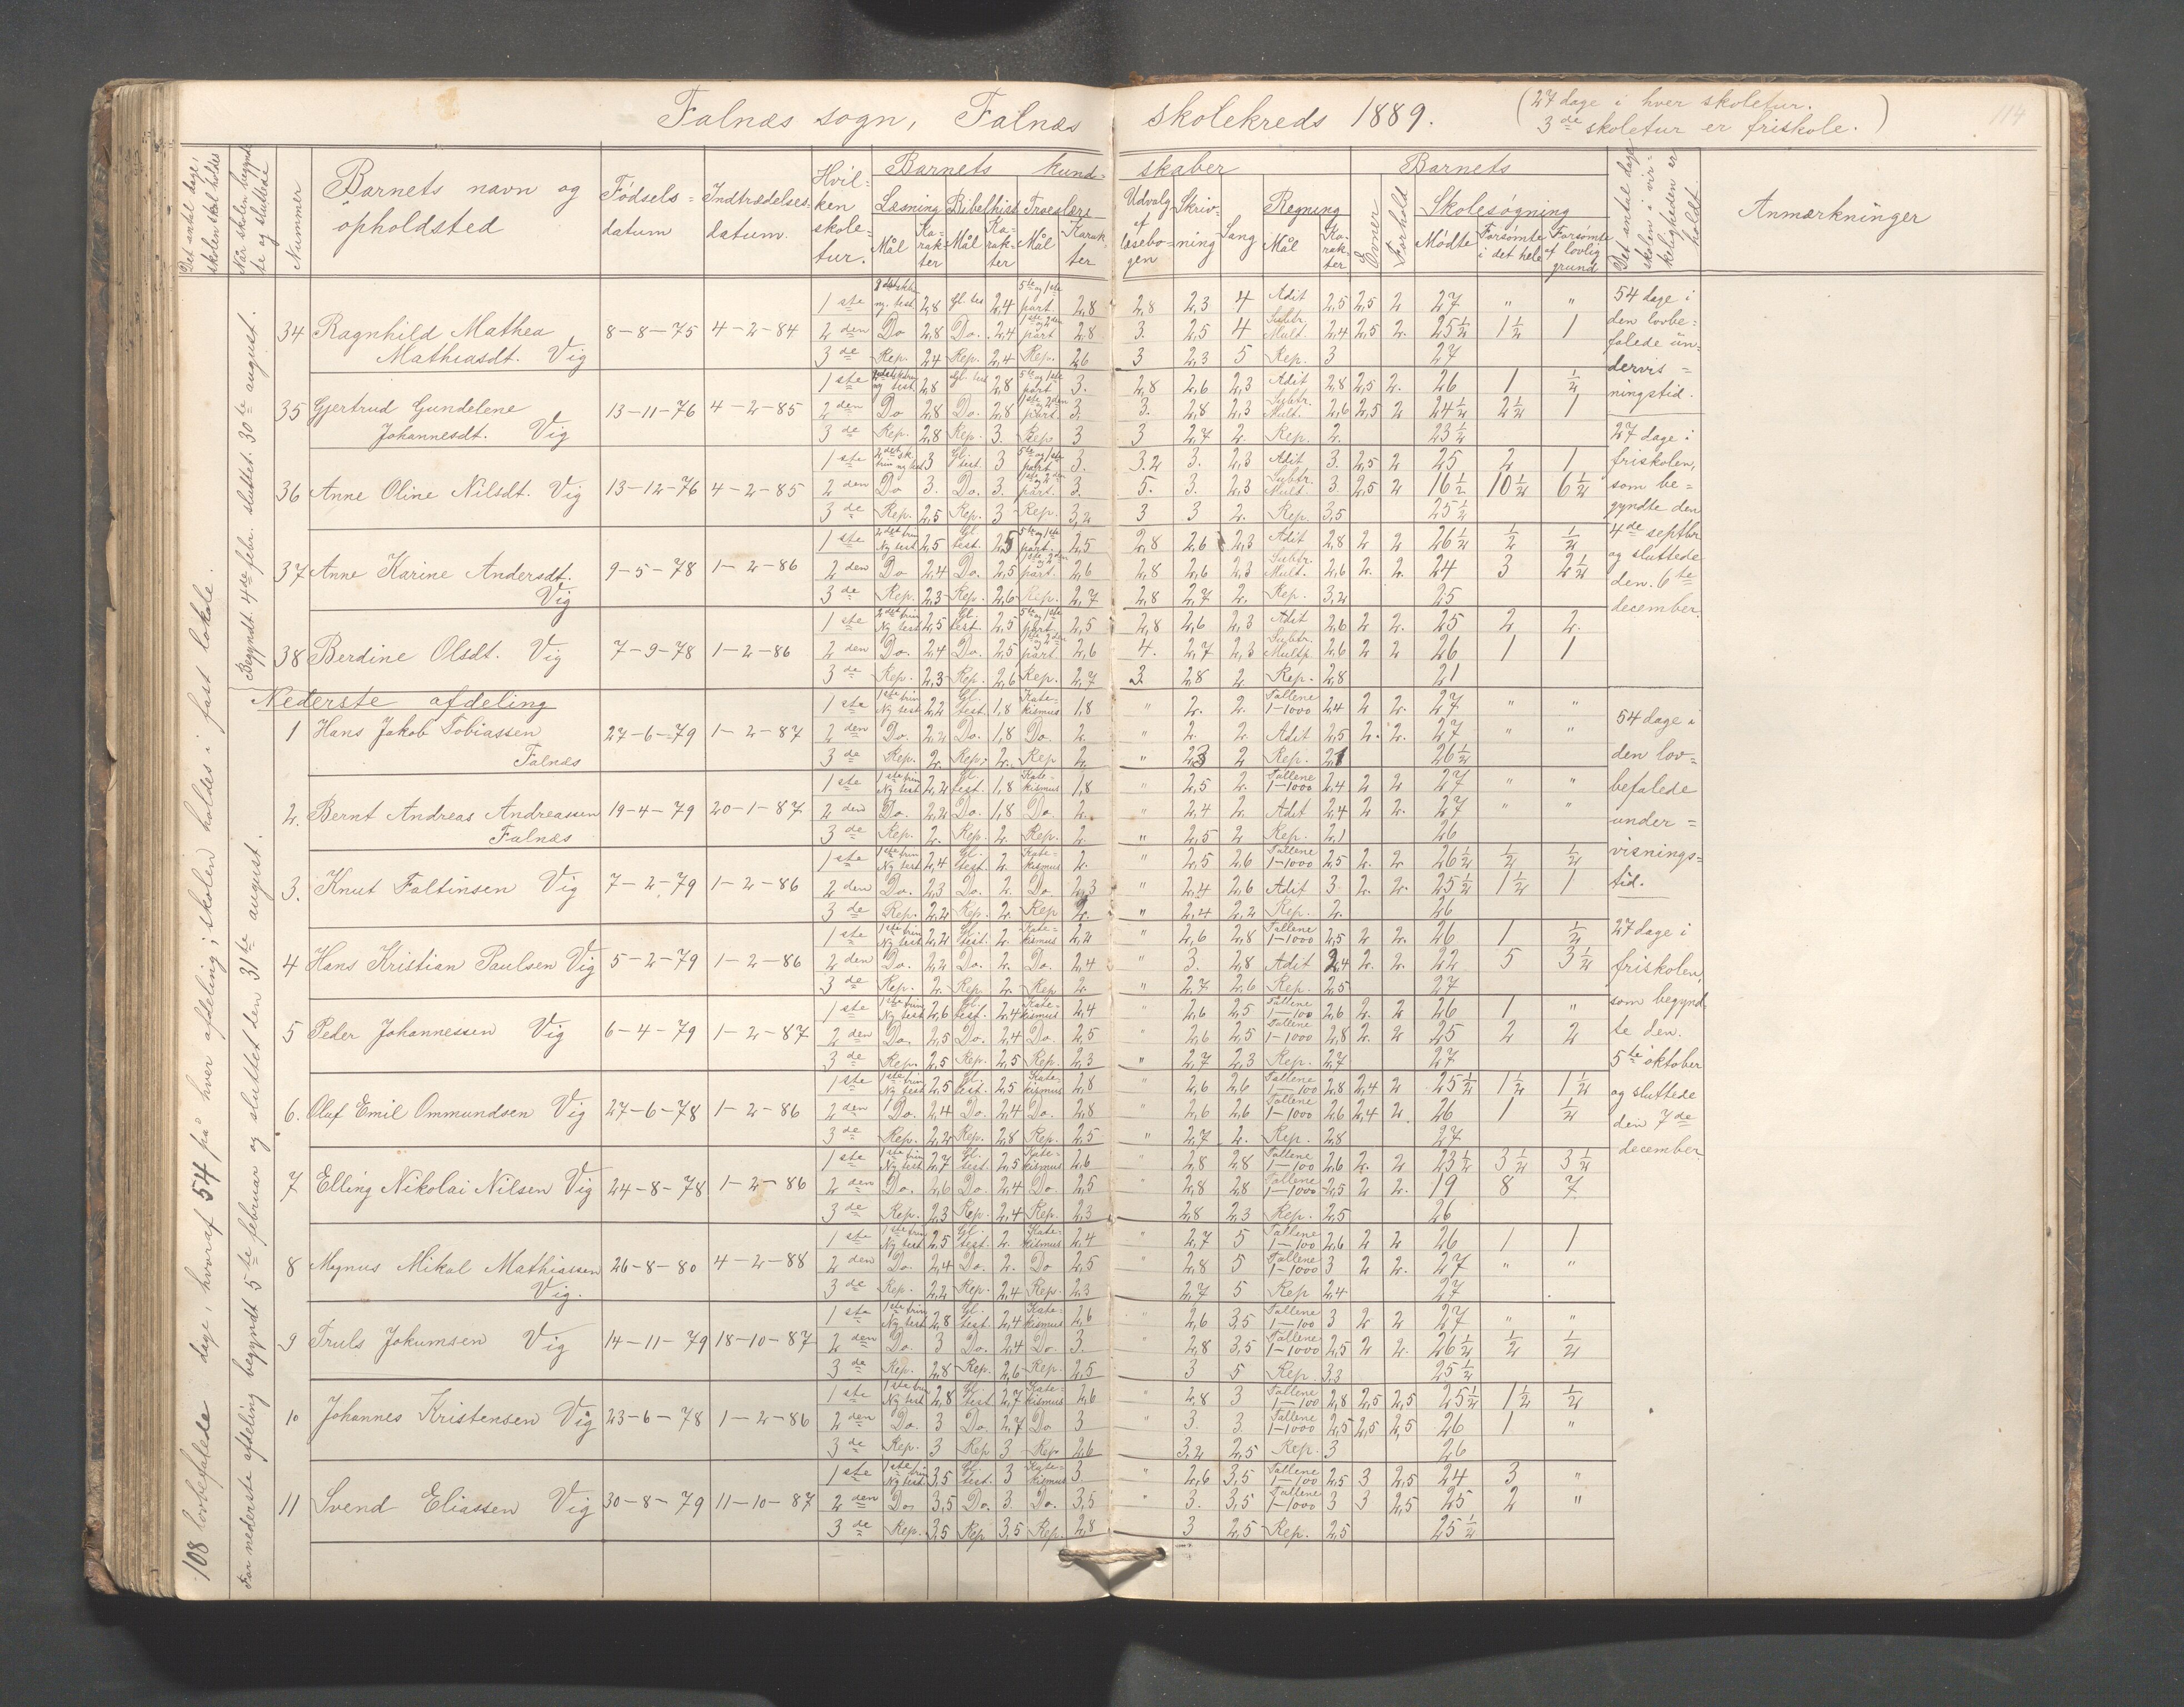 Falnæs sogn, Falnæs skolekreds 1889. (27 dage i hver skoletur.
3de skoletur er friskole.)
114
Det antal dage, skolen skal holdes
Når skolen begyndte og sluttede
Nummer
Barnets navn og opholdsted
Fødselsdatum
Indtrædelsesdatum.
Hvilken skoletur.
Barnets kundskaber
Læsning Mål Karakter
Bibelhist. Mål Karakter
Troeslære Mål Karakter
Udvalg af læsebogen
Skrivning
Sang
Regning Mål Karakter
Barnets
Evner
Forhold
Skolesøgning
Mødte
Forsømte i det hele
Forsømte af lovlig grund
Det antal dage skolen i virkeligheden er holdt.
Anmærkninger
108 lovbefalede dage, hvoraf 54 på hver afdeling; skolen holdes i fast lokale.
Begyndt. 4de febr. sluttet. 30te august.
For nederste afdeling begyndt 5te februar og sluttet den 31te august.
34 Ragnhild Mathea Mathiasdt. Vig 8-8-75 4-2-84
1ste 2,8 Gl. tes 2,4 5te og 1ste part. 2,8 2,8 2,3 4 Adit 2,5 2,5 2 27 " "
2den Do 2,8 Do. 2,4 1ste og 2den part 2,8 3. 2,5 4 Subtr. Mult. 2,4 2,5 2. 25½ 1½ 1
3de Rep. 2,4 Rep. 2,4 Rep. 2,6 3 2,3 5 Rep. 3 27
35 Gjertrud Gundelene Johannesdt. Vig 13-11-76 4-2-85
1ste 2,8 Gl. test 2,8 5te og 1ste part. 3. 2,8 2,6 2,3 Adit 2,8 2,5 2. 26 1 ½
2den Do 2,8 Do. 2,8 1ste 2den part. 3. 3. 2,8 2,3 Subtr. Mult. 2,6 2,5 2 24½ 2½ 1
3de Rep. 2,8 Rep. 3. Rep 3 3 2,7 2. Rep. 2. 23½
36 Anne Oline Nilsdt. Vig 13-12-76 4-2-85
1ste 3 Gl. test. 3 5te og 1ste part 3. 3.2 3. 2,3 Adit 3. 2,5 2 25 2 1
2den Do 3. Do. 3. 1ste og 2den part. 3. 5. 3. 2,3 Subtr. Mult. 3 2,5 2 16½ 10½ 6½
3de Rep. 2,5 Rep. 3 Rep. 3,2 3 3 2. Rep. 3,5 25½
37 Anne Karine Andersdt. Vig 9-5-78 1-2-86
1ste 2det trin Ny test 2,5 Gl. test. 2,5 5te og 1ste part. 2,5 2,8 2,6 2,3 Adit 2,8 2 2 26½ ½ ½
2den Do 2,4 Do. 2,5 1ste 2den part. 2,6 2,8 2,6 2,3 Subtr. Mult. 2,6 2. 2. 24 3 2½
3de Rep. 2,3 Rep. 2,6 Rep. 2,7 2,8 2,7 2. Rep. 3,2 25
38 Berdine Olsdt. Vig 7-9-78 1-2-86
1ste 2det trin Ny test 2,5 Gl. test. 2,5 5te og 1ste part 2,5 2,8 2,6 2,3 Adit 2,6 2 2. 25 2 2.
2den Do. 2,4 Do. 2,5 1ste og 2den part 2,6 4. 2,7 2,3 Subtr. Multp. 2,6 2 2 26 1 1
3de Rep. 2,3 Rep. 2,6 Rep. 2,7 3. 2,8 2 Rep. 2,8 21
54 dage i
den lovbe=
falede un=
dervis=
ningstid.
27 dage i
friskolen,
som be=
gyndte den
4de septbr
og sluttede
den. 6te
december
Nederste afdeling
1 Hans Jakob Tobiassen Falnæs 27-6-79 1-2-87
1ste 1ste trin Ny test 2,2 Gl. test. 1,8 Katekismus 1,8 " 2. 2. Tallene 1-1000 2,4 2 2. 27 " "
2den Do. 2,2 Do. 1,8 Do. 2. " 2. 2. Adit 2,5 2. 2. 27 " "
3de Rep. 2. Rep. 2. Rep 2. " 2,3 2 Rep. 2,1 26½
2. Bernt Andreas Andreassen Falnæs 19-4-79 20-1-87
1ste 1ste trin Ny test 2,2 Gl. test. 1,8 Katekismus 1,8 " 2,5 2. Tallene 1-1000 2,4 2 2 27 " "
2den Do. 2,2 Do. 1,8 Do. 2. " 2,4 2. Adit 2,4 2 2. 27 " "
3de Rep. 2. Rep. 2. Rep. 2 " 2,5 2 Rep. 2,1 26
3. Knut Faltinsen Vig 7-2-79 1-2-86
1ste 1ste trin Ny test 2,4 Gl. test. 2. Katekismus 2. " 2,5 2,6 Tallene 1-1000 2,5 2. 2 26½ ½ ½
2den Do. 2,3 Do. 2. Do. 2,3 " 2,4 2,6 Adit 3 2. 2. 25½ 1½ 1
3de Rep. 2,2 Rep. 2. Rep 2. " 2,4 2,2 Rep. 2. 26
4 Hans Kristian Paulsen Vig 5-2-79 1-2-86
1ste 1ste trin Ny test 2,2 Gl. test. 2. Katekismus 2,2 " 2,6 2,8 Tallene 1-1000 2,5 2 2. 26 1 ½
2den Do. 2,2 Do. 2. Do. 2,4 " 3. 2,8 Adit 2,4 2. 2. 22 5 3½
3de Rep. 2. Rep. 2. Rep 2. " 2,7 2,6 Rep. 2,5 27
5 Peder Johannessen Vig 6-4-79 1-2-87
1ste 1ste trin Ny test 2,6 Gl. test. 2,4 Katekismus 2,4 " 2,6 2,5 Tallene 1-100 2,6 2. 2 26 1 "
2den Do. 2,5 Do. 2,4 Do. 2,5 " 2,6 2,5 Tallene 1-1000 2,8 2. 2 25 2 2
3de Rep. 2,5 Rep. 2,5 Rep. 2,3 " 2,7 2,3 Rep. 2,7 27
6. Oluf Emil Ommundsen Vig 27-6-78 1-2-86
1ste 1ste trin Ny test 2,5 Gl. test. 2,5 Katekismus 2,8 " 2,6 2,6 Tallene 1-100 2,8 2,4 2 25½ 1½ 1½
2den Do. 2,4 Do. 2,4 Do. 2,8 " 2,6 2,6 Tallene 1-1000 2,6 2,4 2. 26 1 ½
3de Rep. 2,2 Rep. 2,8 Rep. 2,5 " 2,7 2. Rep. 2,8 27
7 Elling Nikolai Nilsen Vig 24-8-78 1-2-86
1ste 1ste trin Ny test 2,7 Gl. test. 2,5 Katekismus 2,6 " 2,8 2,8 Tallene 1-100 2,6 2. 2 23½ 3½ 3½
2den Do. 2,6 Do. 2,4 Do. 2,5 " 2,8 2,8 Tallene 1-1000 2,5 2 2. 19 8 7
3de Rep. 2,3 Rep. 2,4 Rep. 2,3 2,8 2,3 Rep. 2,5 26
8 Magnus Mikal Mathiassen Vig. 26-8-80 4-2-88
1ste 1ste trin Ny test 2,5 Gl. test. 2. Katekismus 2,4 " 2,7 5 Tallene 1-100 2,6 2 2 26 1 1
2den Do. 2,4 Do. 2. Do 2,5 " 2,8 5 Tallene 1-1000 3 2 2. 27 " "
3de Rep. 2,2 Rep. 2,4 Rep. 2,3 2,7 5 Rep 2,4 27
9 Truls Jokumsen Vig 14-11-79 18-10-87
1ste 1ste trin Ny test 2,8 Gl. test. 2,4 Katekismus 2,6 " 2,6 3,5 Tallene 1-100 3 2 2 27 " "
2den Do. 3 Do. 2,4 Do. 3. " 2,8 3,5 Tallene 1-1000 2,5 2 2. 26½ ½ ½
3de Rep. 2,8 Rep. 2,6 Rep. 2,5 3 5 Rep. 3,3 25½
10 Johannes Kristensen Vig 23-6-78 1-2-86
1ste 1ste trin Ny test 2,8 Gl. test 2,7 Katekismus 2,6 " 2,8 3 Tallene 1-100 2,8 2,5 2,5 25½ 1½ ½
2den Do. 3 Do. 2,7 Do 3 " 3. 3. Tallene 1-1000 2,5 2,5 2,5 26 1 "
3de Rep. 3 Rep 3 Rep 2,6 3,2 2,5 Rep. 3 26
11 Svend Eliassen Vig 30-8-79 11-10-87
1ste 1ste trin Ny test 3,5 Gl. test. 3 Katekismus 3 " 2,6 3,5 Tallene 1-100 2,5 3 2,5 24 3 "
2den Do. 3,5 Do. 3. Do. 3,5 " 3. 3,5 Tallene 1-1000 3 3 2,5 25 2 "
3de Rep. 3,5 Rep 3,5 Rep. 2,8 3 2,5 Rep. 2,5 25½
54 dage i
den lov=
befalede
under=
visnings=
tid.
27 dage i
friskolen,
som begynd
te den.
5te oktober
og sluttede
den 7de
december